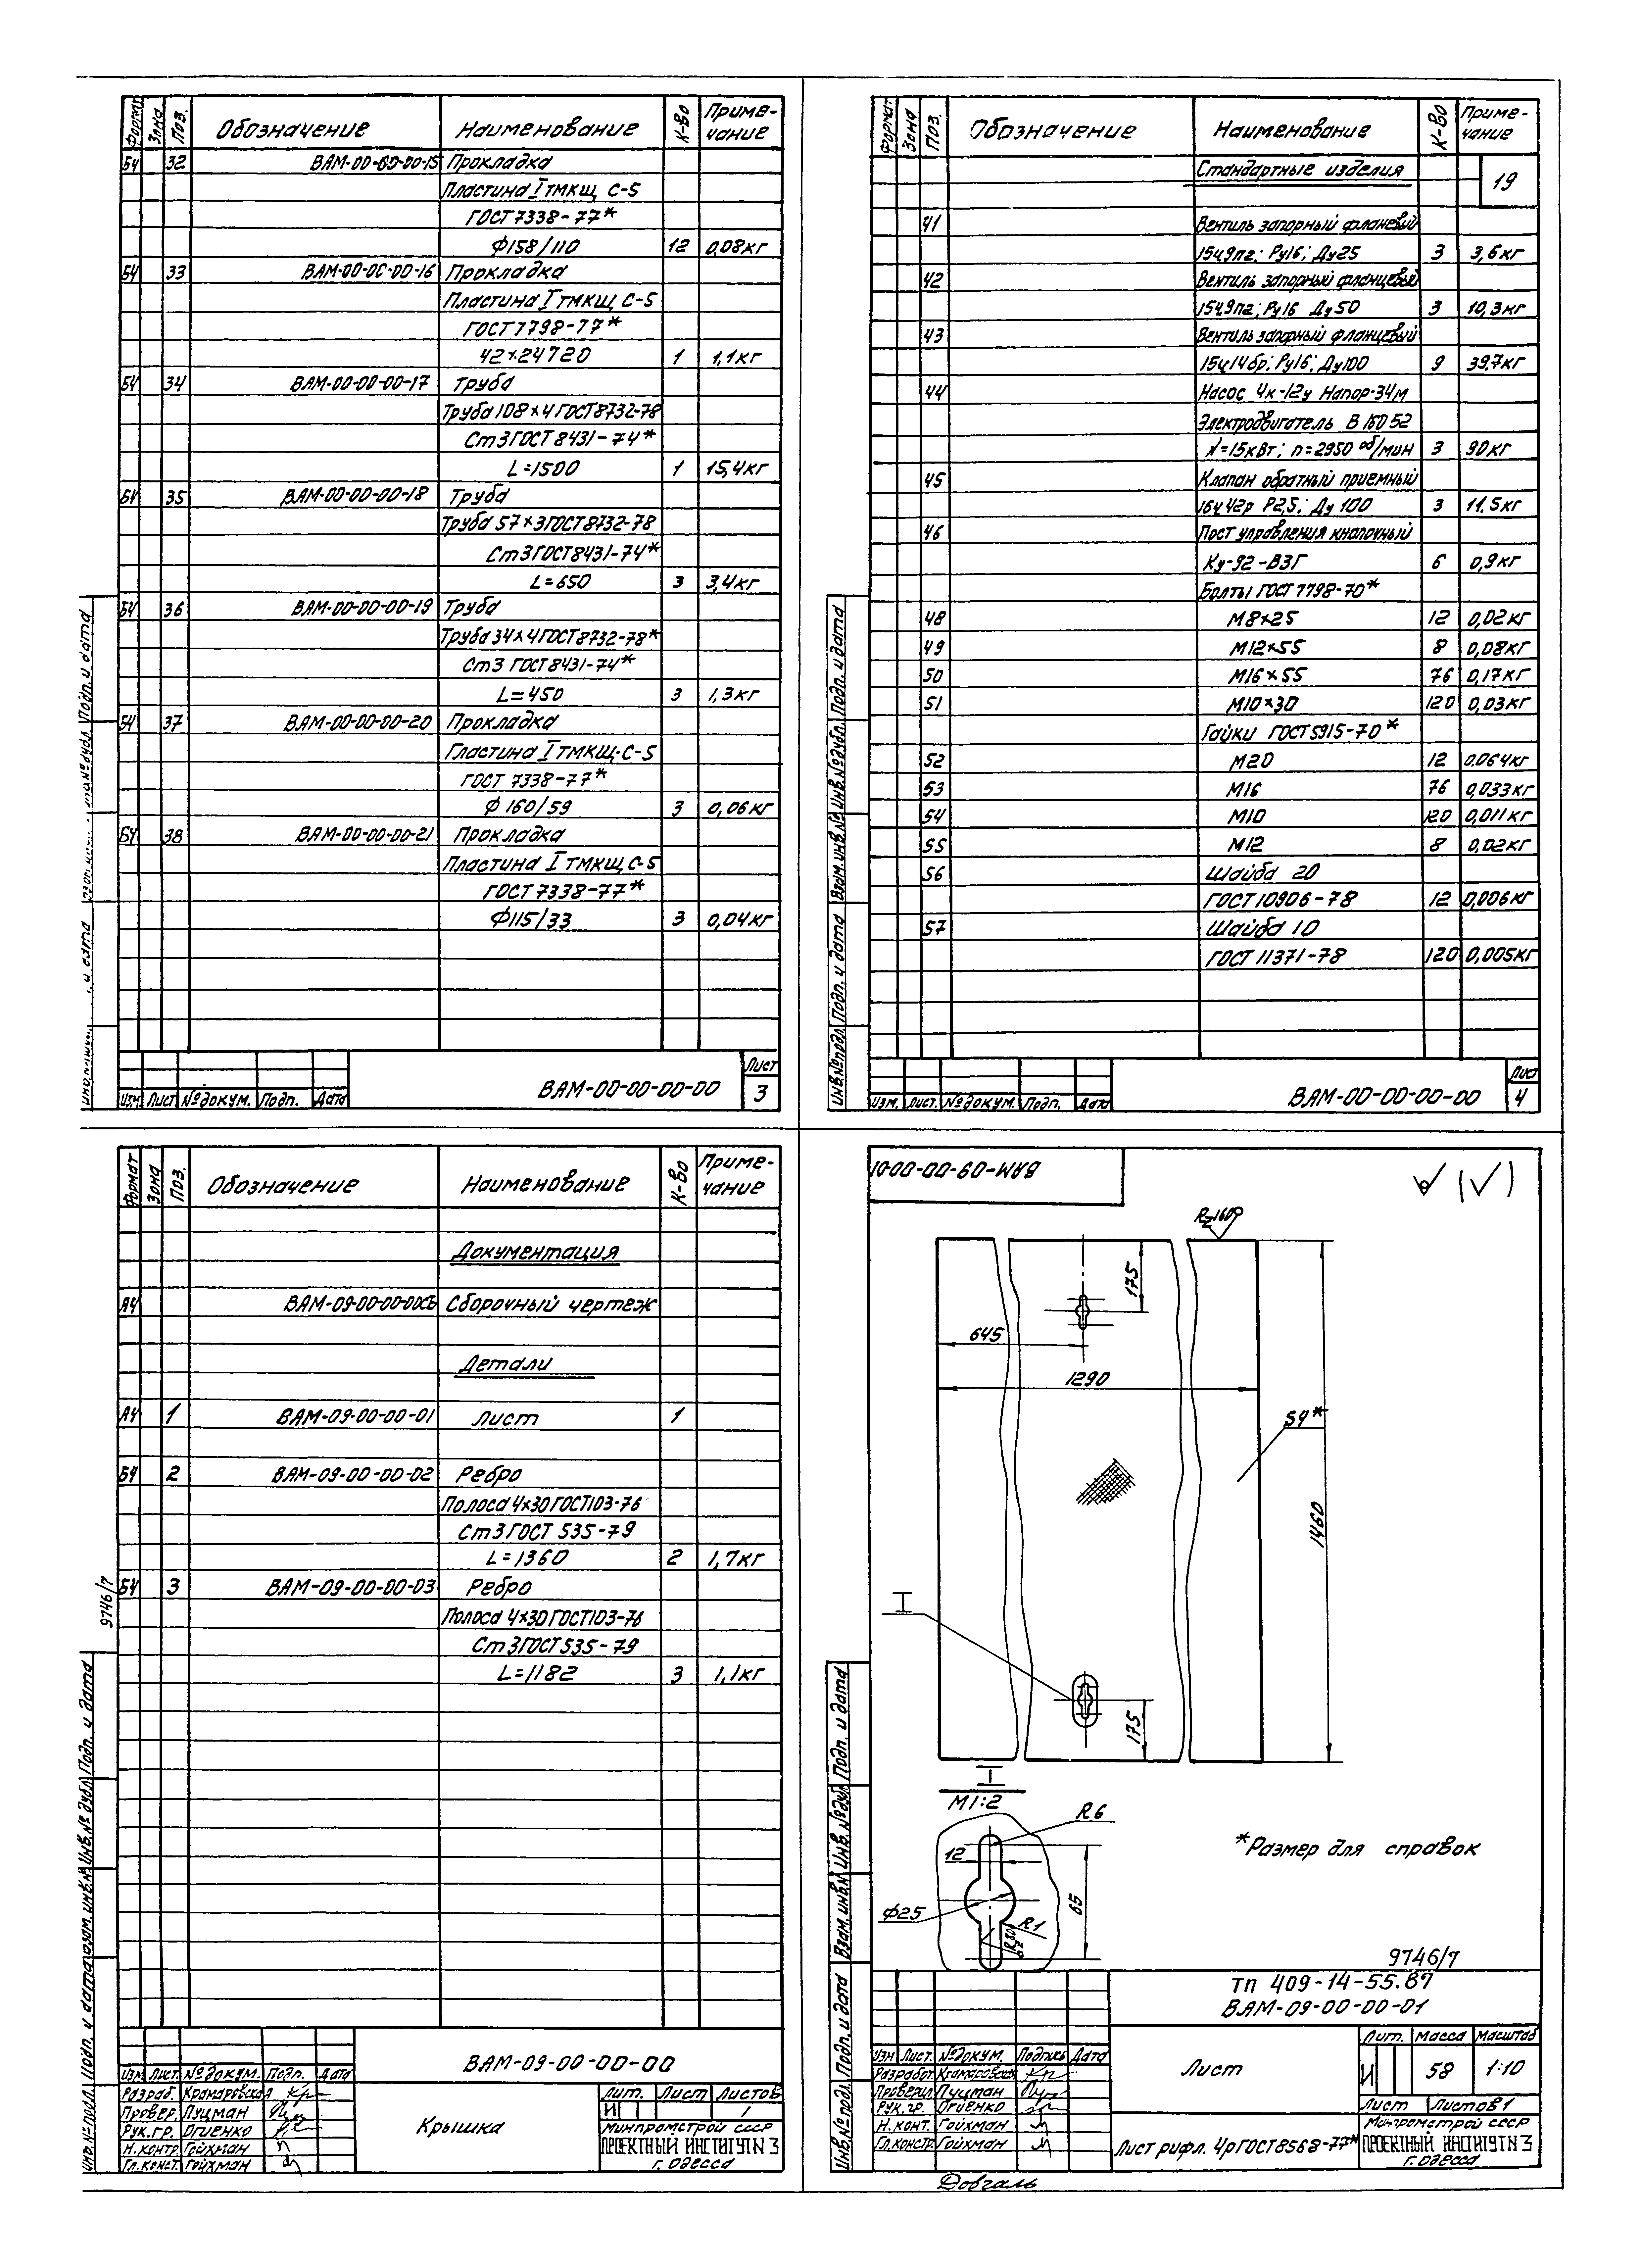 Формат Зона Поз. Обозначение Наименование К-во Приме-
чание
БЧ 32 ВАМ-00-00-00-15 Прокладка
Пластина I ТМКЩ С-5
ГОСТ 7338-77*
Ф158/110 12 0,08кг
БЧ 33 ВАМ-00-00-00-16 Прокладка
Пластина I ТМКЩ С-5
ГОСТ 7798-77*
42×24720 1 1,1кг
БЧ 34 ВАМ-00-00-00-17 Труба
Труба 108×4 ГОСТ 8732-78
Ст3 ГОСТ 8431-74*
L=1500 1 15,4кг
БЧ 35 ВАМ-00-00-00-18 Труба
Труба 57×3 ГОСТ 8732-78
Ст3 ГОСТ 8431-74*
L=650 3 3,4кг
БЧ 36 ВАМ-00-00-00-19 Труба
Труба 34×4 ГОСТ 8732-78*
Ст3 ГОСТ 8431-74*
L=450 3 1,3кг
БЧ 37 ВАМ-00-00-00-20 Прокладка
Пластина I ТМКЩ-С-5
ГОСТ 7338-77*
Ф 160/59 3 0,06кг
БЧ 38 ВАМ-00-00-00-21 Прокладка
Пластина I ТМКЩ С-5
ГОСТ 7338-77*
Ф115/33 3 0,04кг
Подп. и дата
Изм. Лист №докум. Подп. Дата
ВАМ-00-00-00-00
Лист
3
Формат Зона Поз. Обозначение Наименование К-во Приме-
чание
Стандартные изделия
19
41 Вентиль запорный фланевый
15ч9пг; Ру16; Ду25 3 3,6кг
42 Вентиль запорный фланцевый
15ч9пг; Ру16 Ду50 3 10,3кг
43 Вентиль запорный фланцевый
15ч14бр; Ру16; Ду100 9 39,7кг
44 Насос 4к-12у Напор-34м
Электродвигатель В 160 52
N=15кВт; n=2950 об/мин 3 90кг
45 Клапан обратный приемный
16ч42р Р2,5; Ду 100 3 11.5кг
46 Пост управления кнопочный
Ку-92-ВЗГ 6 0,9кг
Болты ГОСТ 7798-70*
48 М8×25 12 0,02кг
49 М12×55 8 0,08кг
50 М16×55 76 0,17кг
51 М10×30 120 0,03кг
Гайки ГОСТ 5915-70*
52 М20 12 0,064кг
53 М16 76 0,033кг
54 М10 120 0,011кг
55 М12 8 0,02кг
56 Шайба 20
ГОСТ 10906-78 12 0,006кг
57 Шайба 10
ГОСТ 11371-78 120 0,005кг
Инв.№подл. Подп. и дата Взам.инв.№ Инв.№дубл. Подп. и дата
Изм. Лист. №докум. Подп. Дата
ВАМ-00-00-00-00
Лист
4
Формат Зона Поз. Обозначение Наименование К-во Приме-
чание
Документация
А4 ВАМ-09-00-00-00СБ Сборочный чертеж
Детали
А4 1 ВАМ-09-00-00-01 Лист 1
БЧ 2 ВАМ-09-00-00-02 Ребро
Полоса 4×30 ГОСТ103-76
Ст3 ГОСТ 535-79
L=1360 2 1,7кг
БЧ 3 ВАМ-09-00-00-03 Ребро
Полоса 4×30 ГОСТ103-76
Ст3 ГОСТ 535-79
L=1182 3 1,1кг
9746/7
Инв.№подл. Подп. и дата Взам.инв.№ Инв.№дубл. Подп. и дата
ВАМ-09-00-00-00
Изм Лист. №докум. Подп. Дата
Разраб. Крамаровская
Провер. Пуцман
Рук.гр. Огиенко
Н.контр. Гойхман
Гл.конст. Гойхман
Крышка
Лит. Лист Листов
И 1
Минпромстрой СССР
ПРОЕКТНЫЙ ИНСТИТУТ№3
г. Одесса
ВАМ-09-00-00-01
Rz160
175
645
1290
S4*
1460
I
175
I
М1:2
R6
12
Ф25
65
R1
Rz80
*Размер для справок
9746/7
ТП 409-14-55.87
ВАМ-09-00-00-01
Инв.№подл. Подп. и дата Взам.инв.№ Инв.№дубл. Подп. и дата
Изм Лист. №докум. Подпись Дата
Разработ. Крамаровская
Проверил Пуцман
Рук. гр. Огиенко
Н.конт. Гойхман
Гл.констр. Гойхман
Лист
Лит. Масса Масштаб
И 58 1:10
Лист Листов 1
Лист рифл. 4р ГОСТ8568-77*
Минпромстрой СССР
ПРОЕКТНЫЙ ИНСТИТУТ№3
г. Одесса
Довгаль